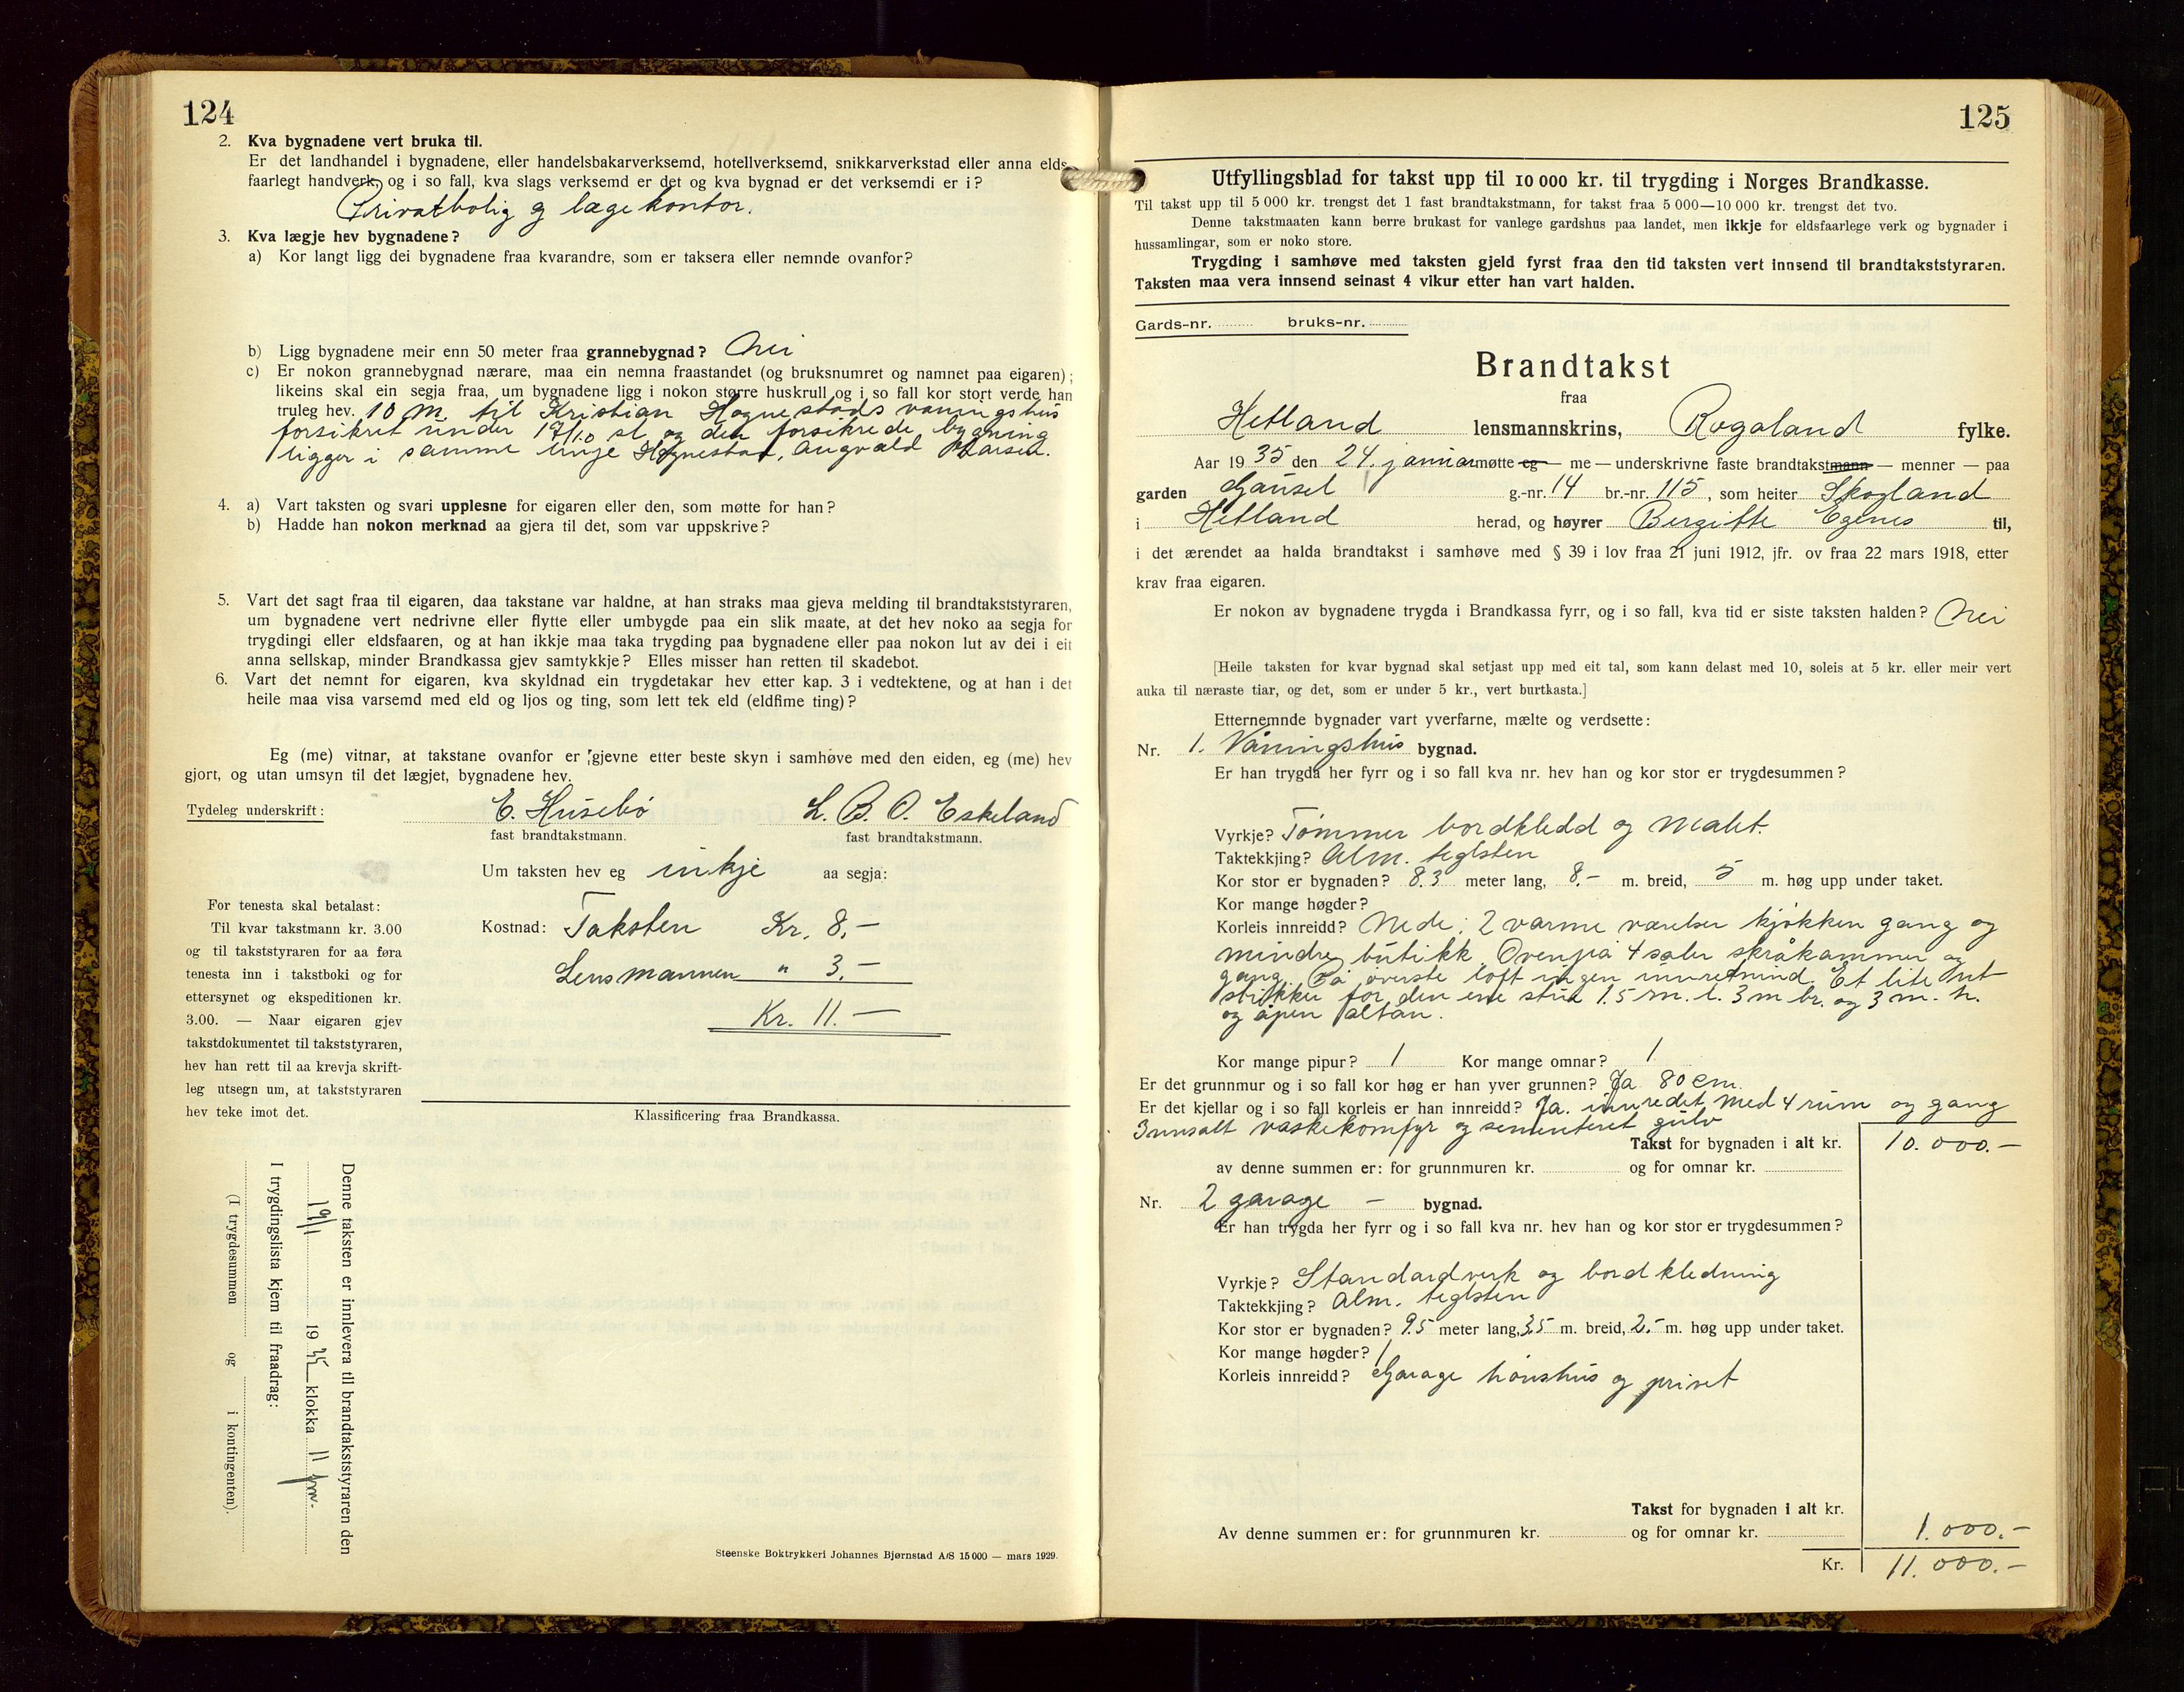 124
2. Kva bygnadene vert bruka til.
Er det landhandel i bygnadene, eller handelsbakarverksemd, hotellverksemd, snikkarverkstad eller anna elds-
faarlegt handverk, og i so fall, kva slags verksemd er det og kva bygnad er det verksemdi er i?
Privatbolig og lægekontor.
3. Kva lægje hev bygnadene?
a) Kor langt ligg dei bygnadene fraa kvarandre, som er taksera eller nemnde ovanfor?
b) Ligg bygnadene meir enn 50 meter fraa grannebygnad? Nei
c) Er nokon grannebygnad nærare, maa ein nemna fraastandet (og bruksnumret og namnet paa eigaren);
likeins skal ein segja fraa, um bygnadene ligg i nokon større huskrull og i so fall kor stort verde han
truleg hev. 10 m. til Kristian Hognestads vaningshus
forsikret under og den forsikrede bygning
ligger i samme linje Hognestad, Angvald
4. a) Vart taksten og svari upplesne for eigaren eller den, som møtte for han?
b) Hadde han nokon merknad aa gjera til det, som var uppskrive?
5. Vart det sagt fraa til eigaren, daa takstane var haldne, at han straks maa gjeva melding til brandtakststyraren,
um bygnadene vert nedrivne eller flytte eller umbygde paa ein slik maate, at det hev noko aa segja for
trygdingi eller eldsfaaren, og at han ikkje maa taka trygding paa bygnadene eller paa nokon lut av dei i eit
anna sellskap, minder Brandkassa gjev samtykkje? Elles misser han retten til skadebot.
6. Vart det nemnt for eigaren, kva skyldnad ein trygdetakar hev etter kap. 3 i vedtektene, og at han i det
heile maa visa varsemd med eld og ljos og ting, som lett tek eld (eldfime ting)?
Eg (me) vitnar, at takstane ovanfor er gjevne etter beste skyn i samhøve med den eiden, eg (me) hev
gjort, og utan umsyn til det lægjet, bygnadene hev.
Tydeleg underskrift: E. Husebö L. B. O. Eskeland
fast brandtakstmann. fast brandtakstmann.
Um taksten hev eg inkje aa segja:
Kostnad: Taksten Kr. 8,-
Lensmannen " 3.-
Kr. 11.-
For tenesta skal betalast:
Til kvar takstmann kr. 3.00
og til takststyraren for aa føra
tenesta inn i takstboki og for
ettersynet og ekspeditionen kr.
3.00. — Naar eigaren gjev
takstdokumentet til takststyraren,
hev han rett til aa krevja skrift-
leg utsegn um, at takststyraren
hev teke imot det.
Klassificering fraa Brandkassa.
Denne taksten er innlevera til brandtakststyraren den
19/1 1935 klokka 11 fm.
I trygdingslista kjem til fraadrag:
(I trygdesummen og i kontingenten).
Steenske Boktrykkeri Johannes Bjørnstad A/S 15000 — mars 1929.
125
Utfyllingsblad for takst upp til 10 000 kr. til trygding i Norges Brandkasse.
Til takst upp til 5 000 kr. trengst det 1 fast brandtakstmann, for takst fraa 5 000—10 000 kr. trengst det tvo.
Denne takstmaaten kann berre brukast for vanlege gardshus paa landet, men ikkje for eldsfaarlege verk og bygnader i
hussamlingar, som er noko store.
Trygding i samhøve med taksten gjeld fyrst fraa den tid taksten vert innsend til brandtakststyraren.
Taksten maa vera innsend seinast 4 vikur etter han vart halden.
Gards-nr. bruks-nr.
Brandtakst
fraa
Hetland lensmannskrins, Rogaland fylke.
Aar 1935 den 24. januar møtte eg — me — underskrivne faste brandtakstmann — menner — paa
garden Gausel g.-nr. 14 br.-nr. 115, som heiter Skogland
i Hetland herad, og høyrer Bergitte Egenes til,
i det ærendet aa halda brandtakst i samhøve med § 39 i lov fraa 21 juni 1912, jfr. ov fraa 22 mars 1918, etter
krav fraa eigaren.
Er nokon av bygnadene trygda i Brandkassa fyrr, og i so fall, kva tid er siste taksten halden? Nei
[Heile taksten for kvar bygnad skal setjast upp med eit tal, som kann delast med 10, soleis at 5 kr. eller meir vert
auka til næraste tiar, og det, som er under 5 kr., vert burtkasta.]
Etternemnde bygnader vart yverfarne, mælte og verdsette:
Nr. 1. Våningshus bygnad.
Er han trygda her fyrr og i so fall kva nr. hev han og kor stor er trygdesummen?
Vyrkje? Tömmer bordkledd og malet.
Taktekkjing? Alm. teglsten
Kor stor er bygnaden? 8.3 meter lang, 8.- m. breid, 5 m. høg upp under taket.
Kor mange høgder?
Korleis innreidd? Nede: 2 varme værelser kjökken gang og
mindre butikk. Ovenpå 4 saler skråkammer og
gang. På överste loft ingen innredning. Et lite ut
stikker for den ene stue 1.5 m. l. 3 m br. og 3 m. h.
og åpen altan.
Kor mange pipur? 1 Kor mange omnar? 1
Er det grunnmur og i so fall kor høg er han yver grunnen? Ja 80 cm.
Er det kjellar og i so fall korleis er han innreidd? Ja. innredet med 4 rum og gang
vaskekomfyr og sementeret gulv
Takst for bygnaden i alt kr. 10.000.-
av denne summen er: for grunnmuren kr. og for omnar kr.
Nr. 2 garage - bygnad.
Er han trygda her fyrr og i so fall kva nr. hev han og kor stor er trygdesummen?
Vyrkje? Standardverk og bordkledning
Taktekkjing? Alm. teglsten
Kor stor er bygnaden? 9.5 meter lang, 3.5 m. breid, 2.- m. høg upp under taket.
Kor mange høgder? 1
Korleis innreidd? Garage hönshus og privet
Takst for bygnaden i alt kr.
Av denne summen er: for grunnmuren kr. og for omnar kr. 1.000.-
Kr. 11.000.-